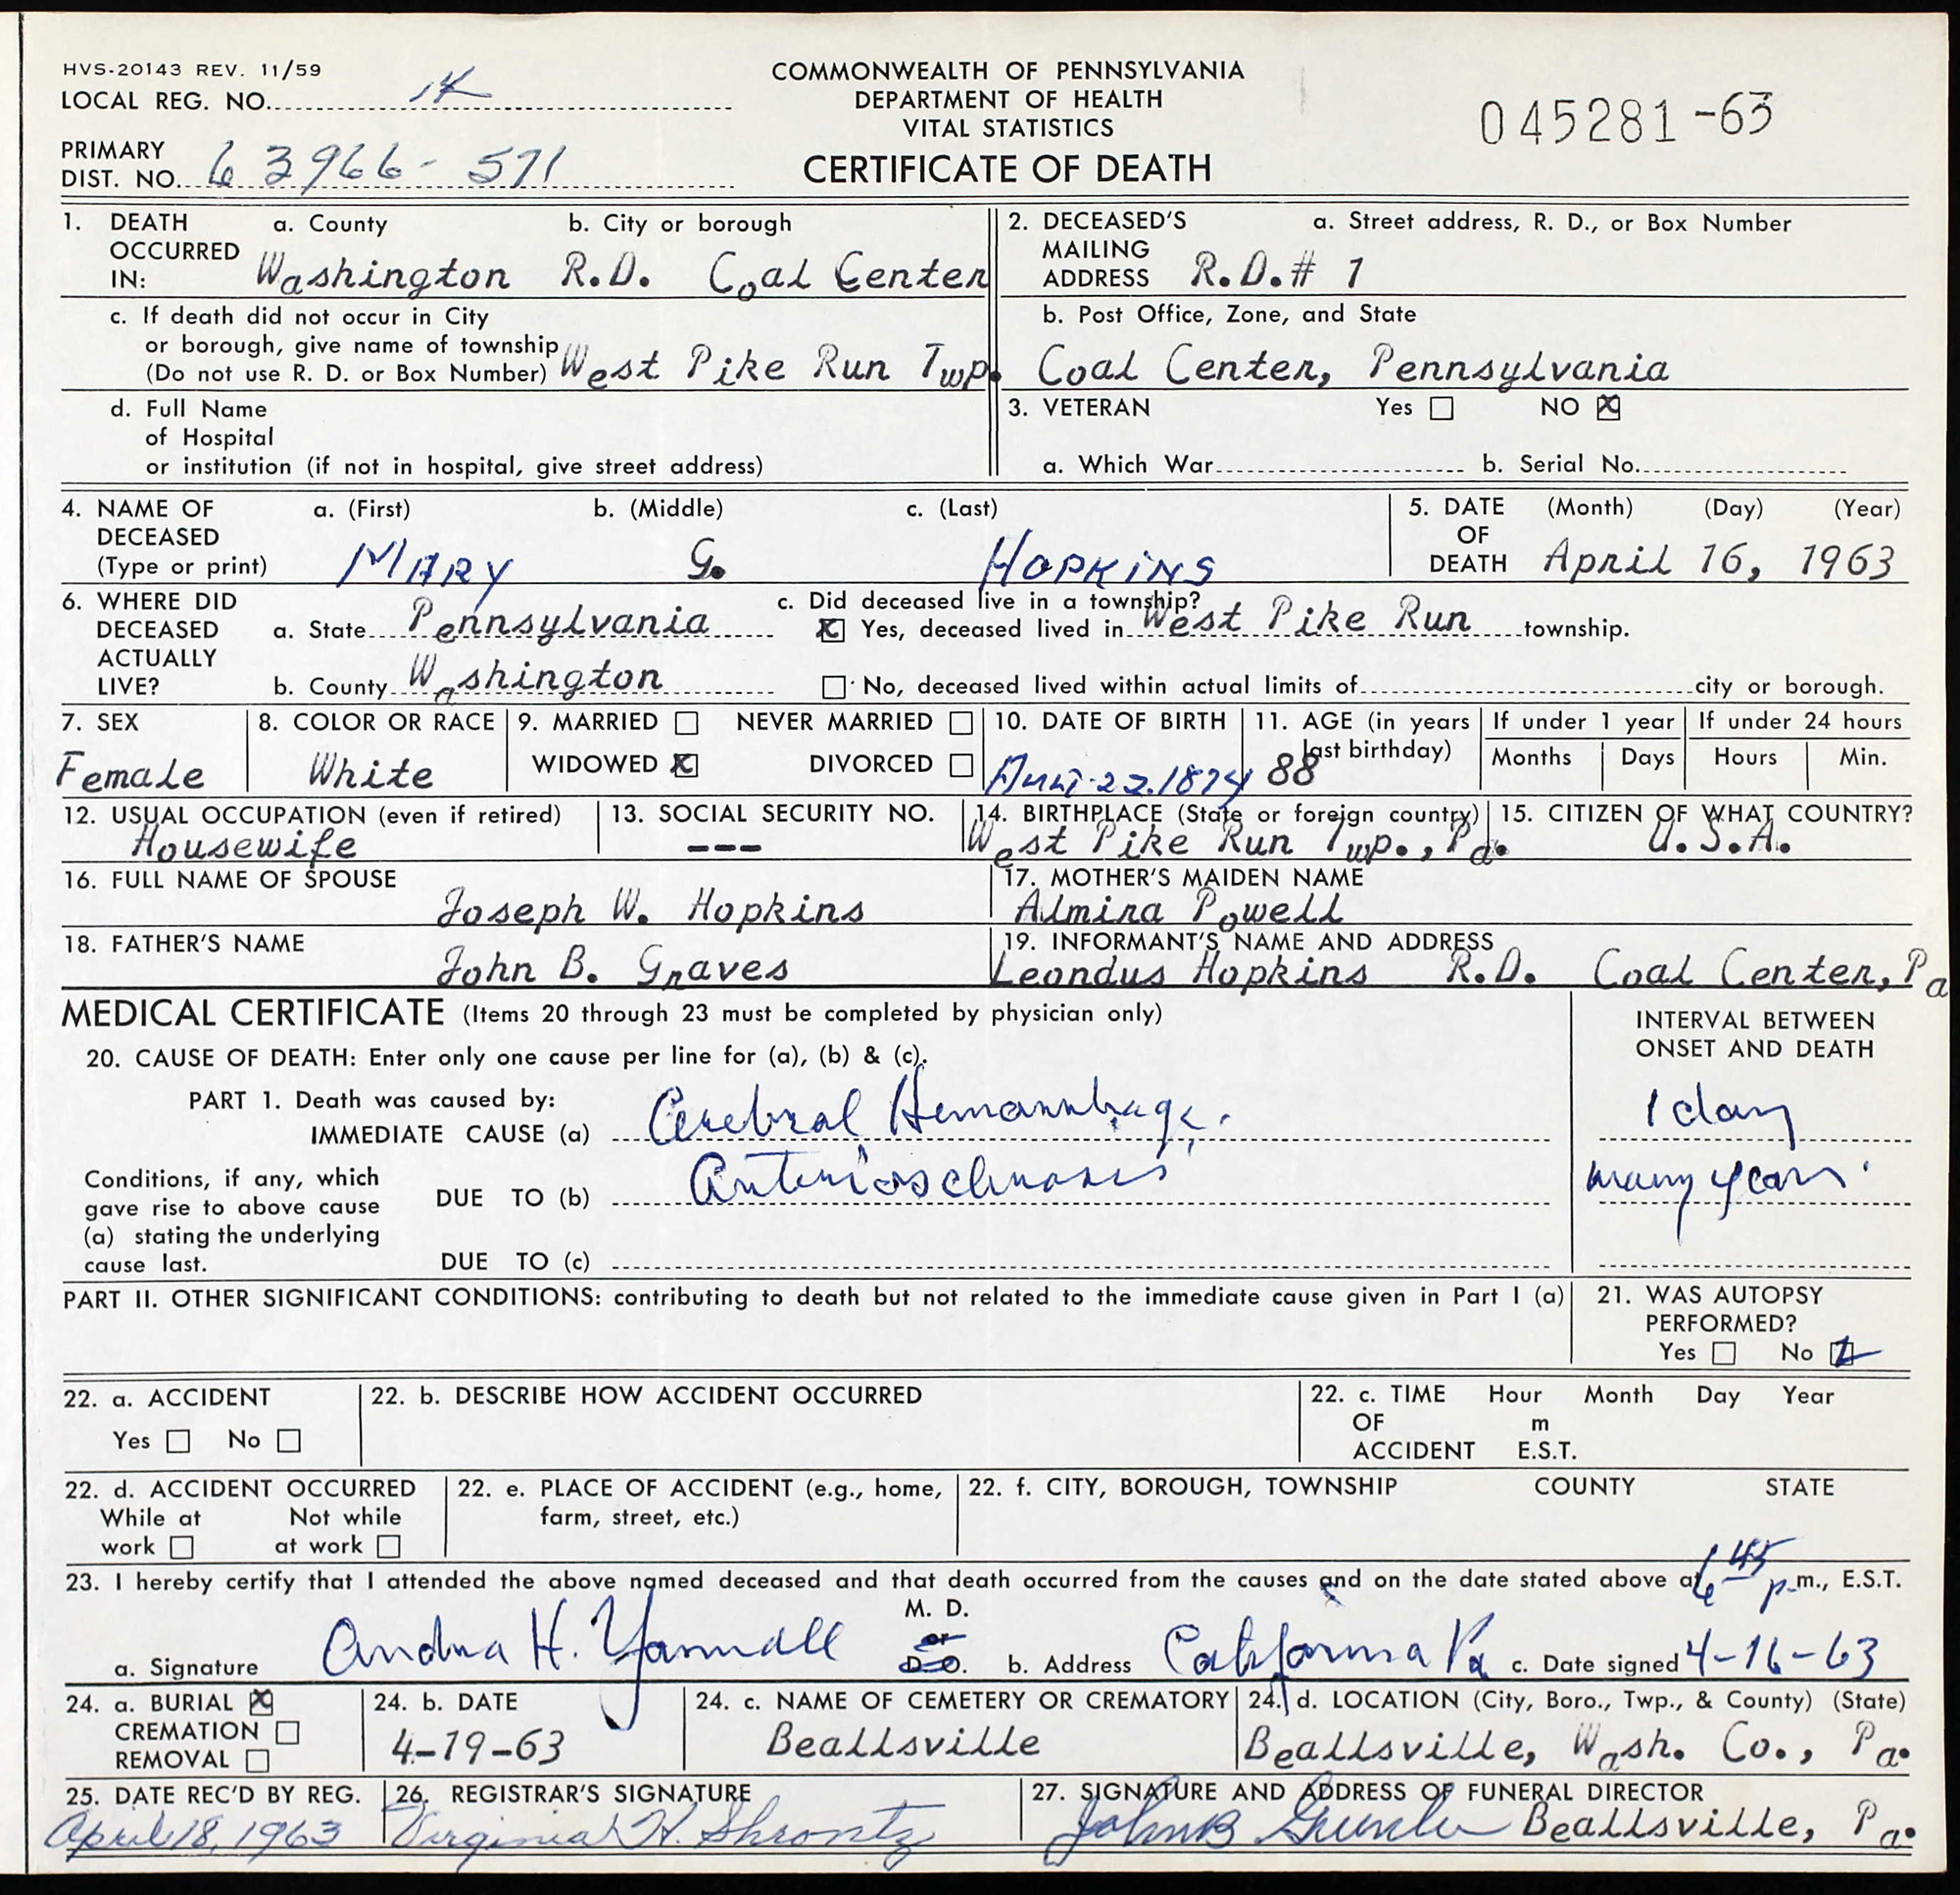 HVS-20143 REV. 11/59
LOCAL REG. NO.
COMMONWEALTH OF PENNSYLVANIA
DEPARTMENT OF HEALTH
VITAL STATISTICS
CERTIFICATE OF DEATH
045281-63
PRIMARY
DIST. NO. 63966-571
1. DEATH OCCURRED IN: a. County b. City or borough
Washington R.D. Coal Center
2. DECEASED'S MAILING ADDRESS a. Street address, R. D., or Box Number
R.D.# 1
c. If death did not occur in City
or borough, give name of township
(Do not use R. D. or Box Number) West Pike Run Twp.
b. Post Office, Zone, and State
Coal Center, Pennsylvania
d. Full Name
of Hospital
or institution (if not in hospital, give street address)
3. VETERAN Yes NO X
a. Which War b. Serial No.
4. NAME OF DECEASED (Type or print) a. (First) b. (Middle) c. (Last)
MARY G. HOPKINS
5. DATE OF DEATH (Month) (Day) (Year)
April 16, 1963
6. WHERE DID DECEASED ACTUALLY LIVE?
a. State Pennsylvania
b. County Washington
c. Did deceased live in a township?
X Yes, deceased lived in West Pike Run township.
No, deceased lived within actual limits of city or borough.
7. SEX
Female
8. COLOR OR RACE
White
9. MARRIED NEVER MARRIED
WIDOWED X DIVORCED
10. DATE OF BIRTH
22.1874
11. AGE (in years last birthday)
88
If under 1 year
Months Days
If under 24 hours
Hours Min.
12. USUAL OCCUPATION (even if retired)
Housewife
13. SOCIAL SECURITY NO.
---
14. BIRTHPLACE (State or foreign country)
West Pike Run Twp., Pa.
15. CITIZEN OF WHAT COUNTRY?
U.S.A.
16. FULL NAME OF SPOUSE
Joseph W. Hopkins
17. MOTHER'S MAIDEN NAME
Almira Powell
18. FATHER'S NAME
John B. Graves
19. INFORMANT'S NAME AND ADDRESS
Leondus Hopkins R.D. Coal Center, Pa
MEDICAL CERTIFICATE (Items 20 through 23 must be completed by physician only)
INTERVAL BETWEEN
ONSET AND DEATH
20. CAUSE OF DEATH: Enter only one cause per line for (a), (b) & (c).
PART 1. Death was caused by:
IMMEDIATE CAUSE (a) Cerebral Hemorrhage. 1 day
Conditions, if any, which
gave rise to above cause
(a) stating the underlying
cause last.
DUE TO (b) Arteriosclerosis many years
DUE TO (c)
PART II. OTHER SIGNIFICANT CONDITIONS: contributing to death but not related to the immediate cause given in Part I (a)
21. WAS AUTOPSY
PERFORMED?
Yes No
22. a. ACCIDENT
Yes No
22. b. DESCRIBE HOW ACCIDENT OCCURRED
22. c. TIME OF ACCIDENT Hour Month Day Year
m
E.S.T.
22. d. ACCIDENT OCCURRED
While at work Not while at work
22. e. PLACE OF ACCIDENT (e.g., home,
farm, street, etc.)
22. f. CITY, BOROUGH, TOWNSHIP COUNTY STATE
23. I hereby certify that I attended the above named deceased and that death occurred from the causes and on the date stated above at 6 45 p.m., E.S.T.
a. Signature H. Yarnall M. D. or D. O. b. Address California Pa c. Date signed 4-16-63
24. a. BURIAL X
CREMATION
REMOVAL
24. b. DATE
4-19-63
24. c. NAME OF CEMETERY OR CREMATORY
Beallsville
24. d. LOCATION (City, Boro., Twp., & County) (State)
Beallsville, Wash. Co., Pa.
25. DATE REC'D BY REG.
April 18, 1963
26. REGISTRAR'S SIGNATURE
Virginia H. Shrontz
27. SIGNATURE AND ADDRESS OF FUNERAL DIRECTOR
John B Beallsville, Pa.